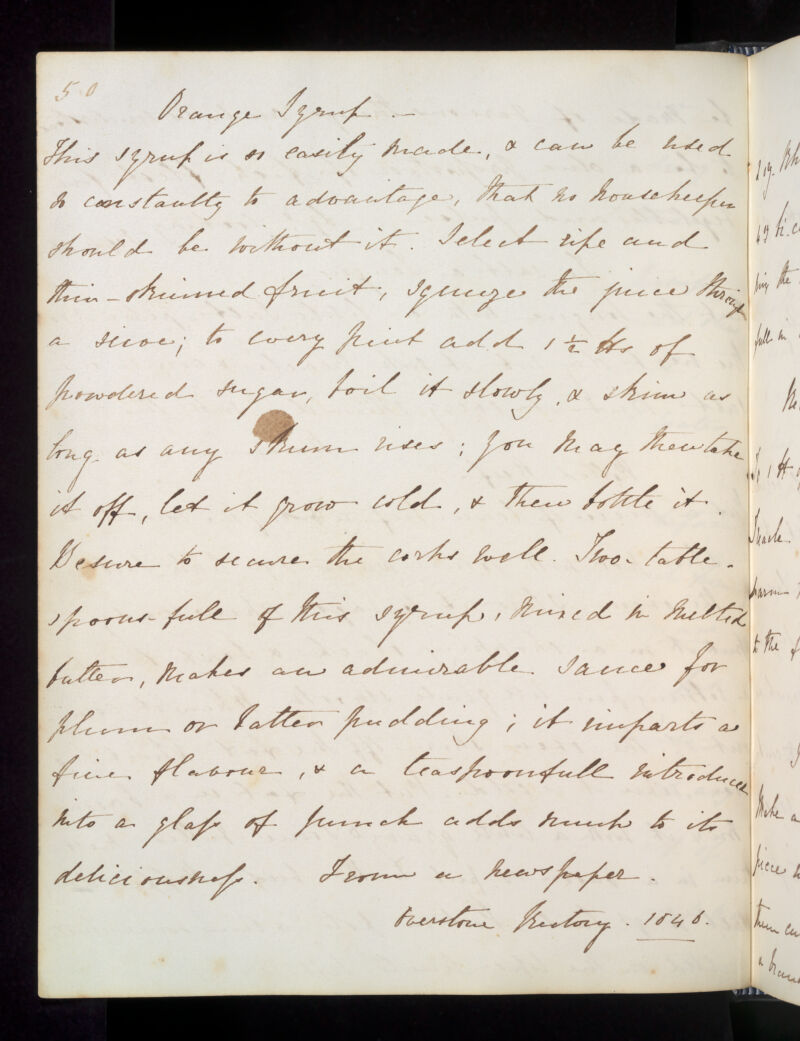 50
Orange Syrup. —
This syrup is so easily made, & can be used
so constantly to advantage, that no housekeeper
should be without it. Select ripe and
thin-skinned fruit, squeeze the juice through
a sieve; to every pint add 1 1/2 lbs of
powdered sugar, boil it slowly, & skim as
long as any skum rises; you may then take
it off, let it grow cold, & then bottle it.
Be sure to secure the corks well. Two table-
spoons-full of this syrup, mixed in melted
butter, makes an admirable sauce for
plum or batter pudding; it imparts a
fine flavour, & a teaspoonfull introduced
into a glass of punch adds much to its
deliciousness. From a newspaper.
Overstone Rectory. 1846.